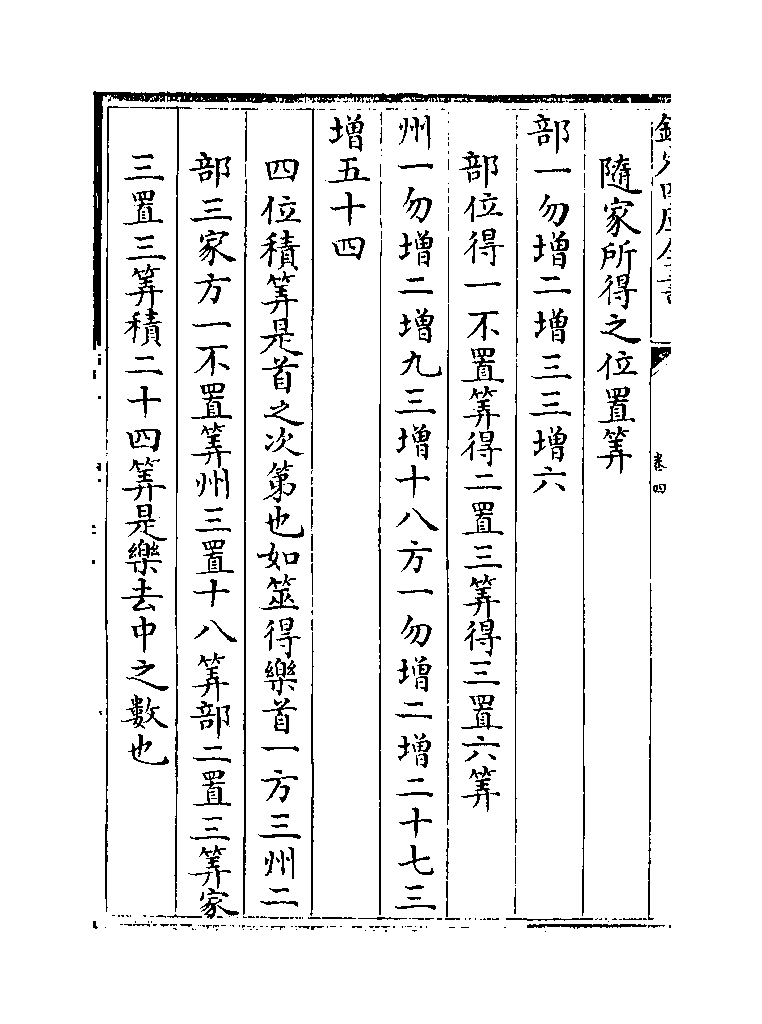 卷四
隨家所得之位置筭
部一勿增二增三三增六
部位得一不置筭得二置三筭得三置六筭
州一勿增二增九三增十八方一勿增二增二十七三
增五十四
四位積筭是首之次第也如筮得樂首一方三州二
部三家方一不置筭州三置十八筭部二置三筭家
三置三筭積二十四筭是樂去中之數也